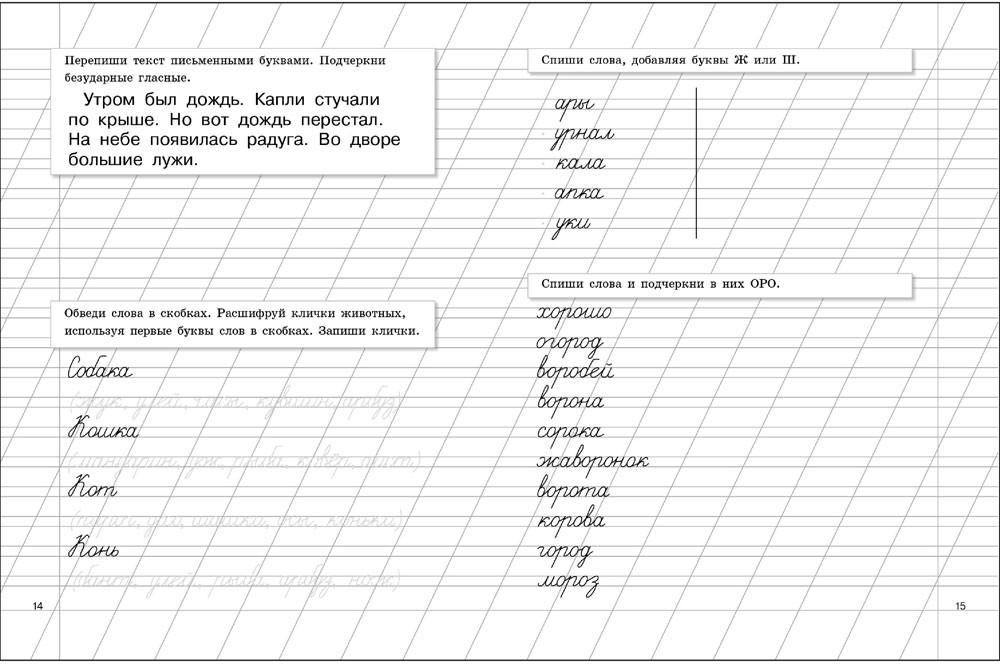 Перепиши текст письменными буквами. Подчеркни
безударные гласные.
Утром был дождь. Капли стучали
по крыше. Но вот дождь перестал.
На небе появилась радуга. Во дворе
большие лужи.
Обведи слова в скобках. Расшифруй клички животных,
используя первые буквы слов в скобках. Запиши клички.
Собака
(жук, улей, чиж, кувшин, арбуз)
Кошка
(мандарин, уж, рыба, ковёр,
Кот
шишки, осы, коньки)
Конь
улей, рыба, арбуз,
14
Спиши слова, добавляя буквы Ж или Ш.
ары
урнал
кала
апка
уки
Спиши слова и подчеркни в них ОРО.
хорошо
огород
воробей
ворона
сорока
жаворонок
ворота
корова
город
мороз
15